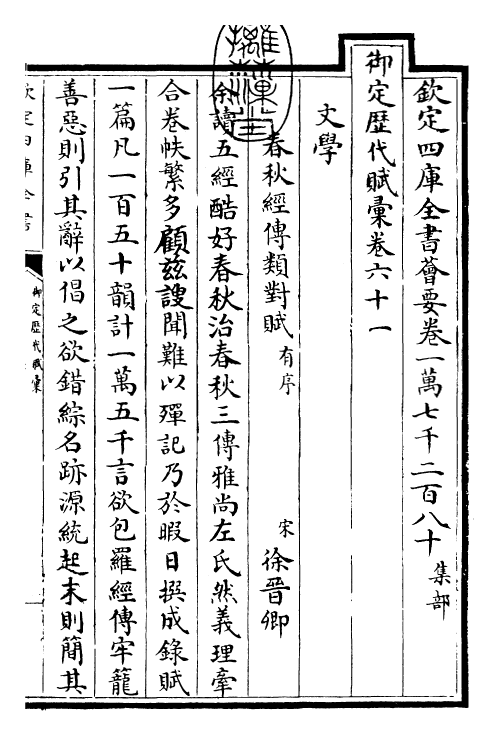 欽定四庫全書薈要卷一萬七千二百八十 集部
御定歷代賦彙卷六十一
文學
春秋經傳類對賦 有序 宋 徐晉卿
余讀五經酷好春秋治春秋三傳雅尚左氏然義理牽
合卷帙繁多顧茲謏聞難以殫記乃於暇日撰成錄賦
一篇凡一百五十韻計一萬五千言欲包羅經傳牢籠
善惡則引其辭以倡之欲錯綜名跡源統起末則簡其
欽定四庫全書
御定歷代賦彙